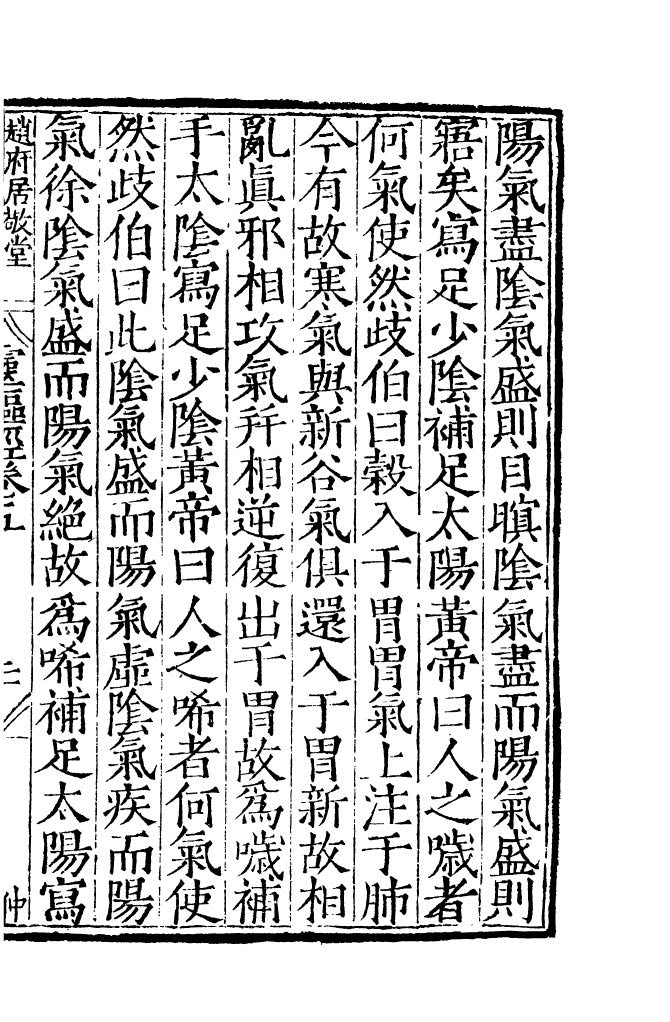 陽氣盡陰氣盛則目瞑陰氣盡而陽氣盛則
寤矣寫足少陰補足太陽黃帝曰人之噦者
何氣使然歧伯曰穀入于胃胃氣上注于肺
今有故寒氣與新谷氣俱還入于胃新故相
亂眞邪相攻氣并相逆復出于胃故爲噦補
手太陰寫足少陰黃帝曰人之唏者何氣使
然歧伯曰此陰氣盛而陽氣虛陰氣疾而陽
氣徐陰氣盛而陽氣絶故爲唏補足太陽寫
趙府居敬堂 靈樞經卷之五 二 仲